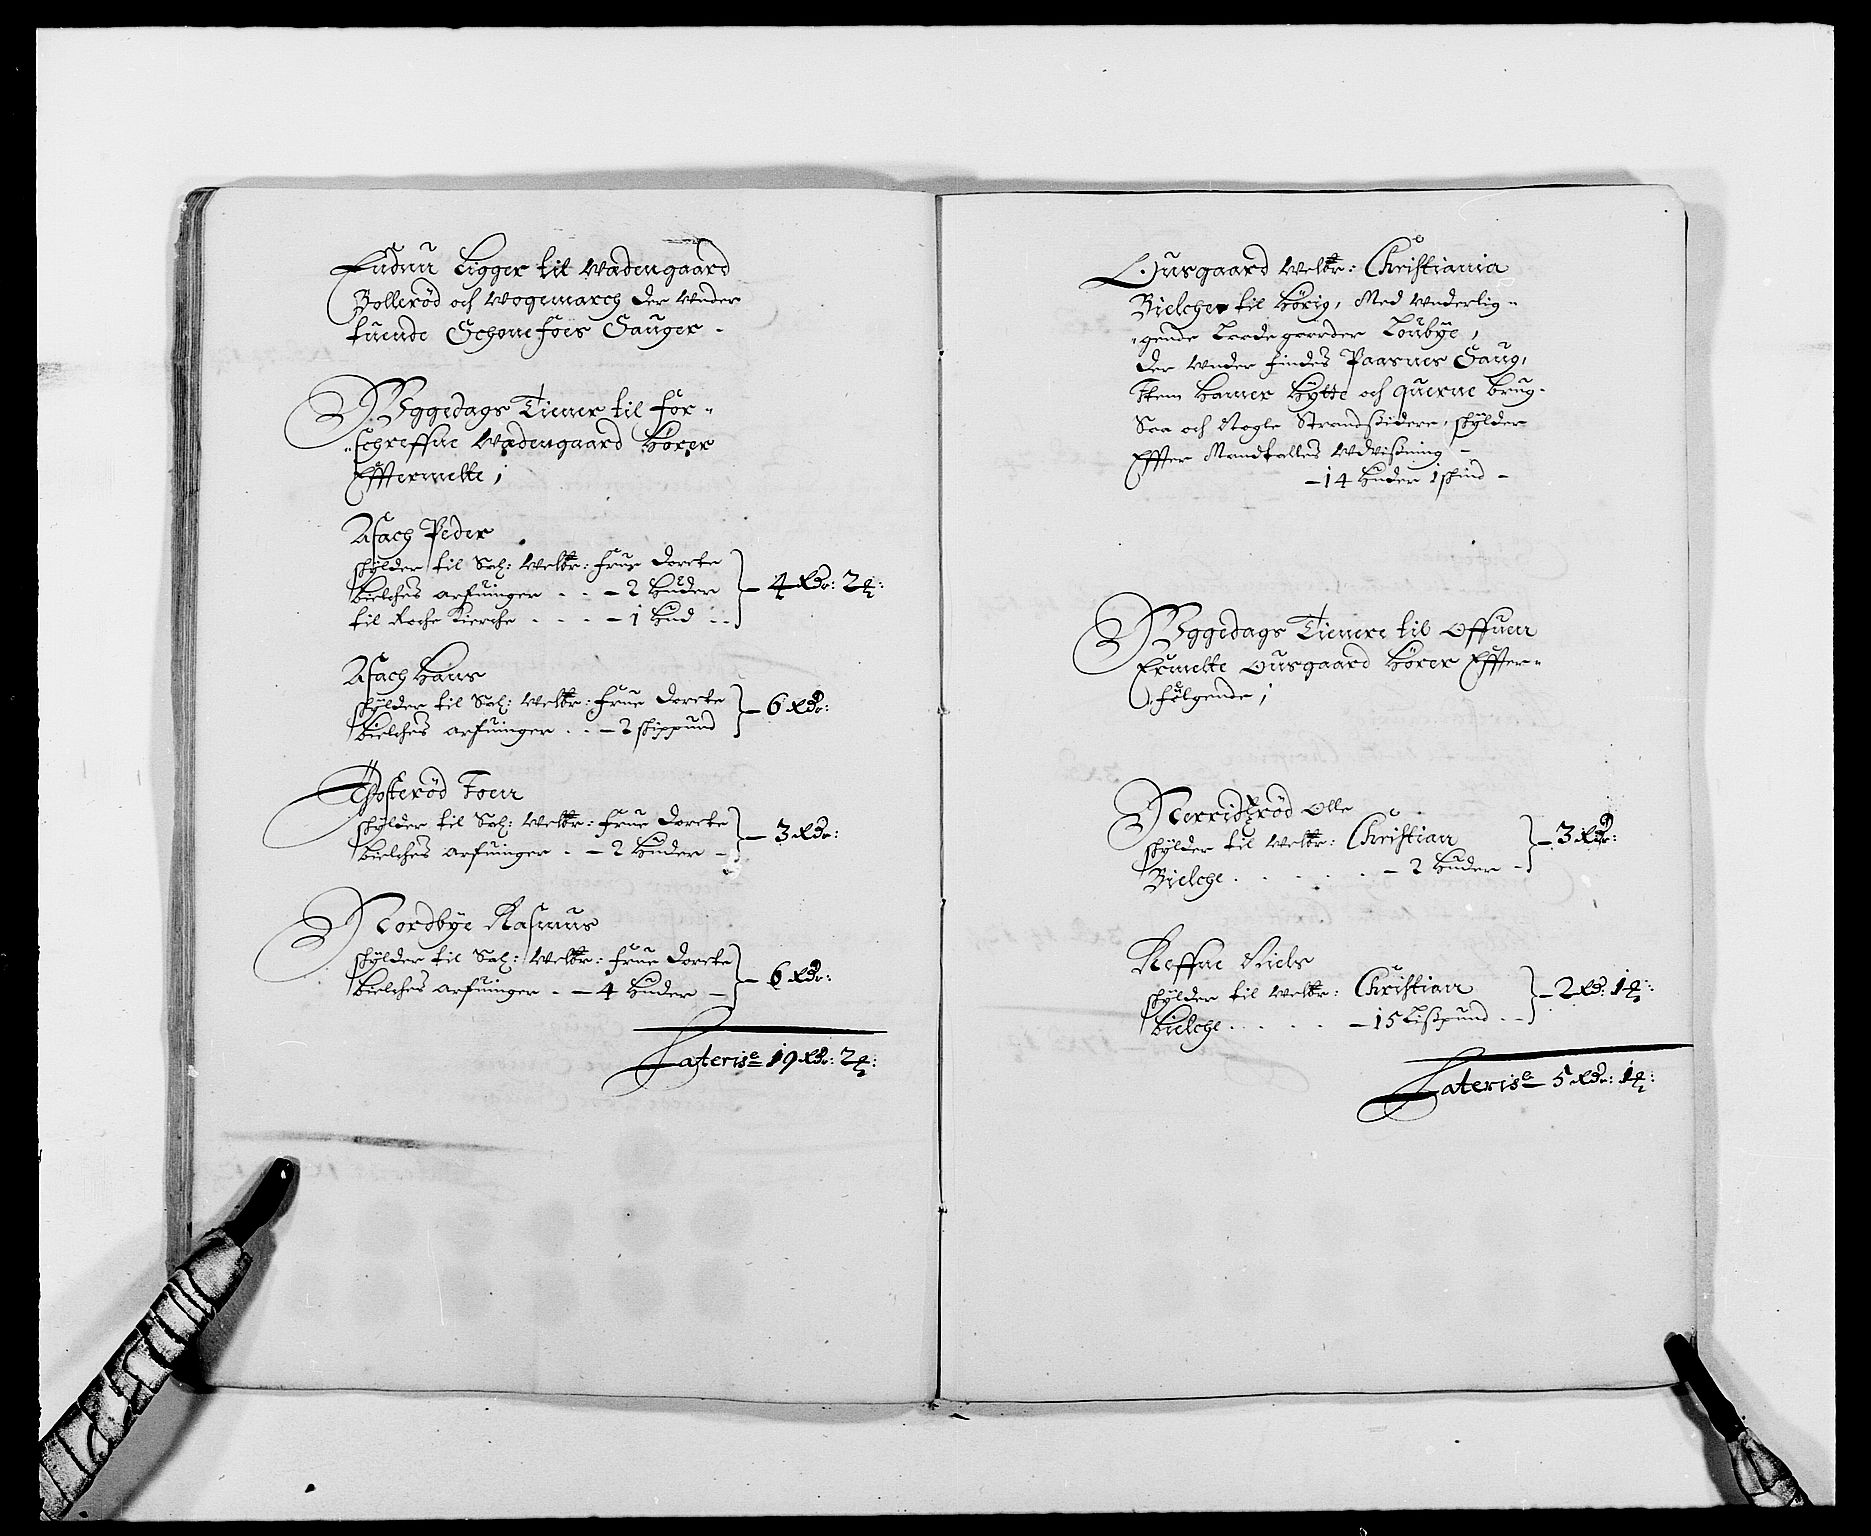 Endnu Ligger til Wadengaard
Bollerød och Wogemarch der Under
tuende Schonefoes Sauger -
Uggedags Tiener til for-
-schreffne Wadengaard hører
Efftermelte;
Asach Peder
schylder til Sal: Welbr: Frue Dorete
Bielches arfuinger . . - 2 huder
til Rocke Kierche . . . - 1 hud
- 4 Rdr: 2 ȼ:
Asach Hans
schylder til Sal: Welbr: Frue Dorete
Bielches arfuinger . . - 2 schippund
- 6 Rdr:
Thosterød Toer
schylder til Sal: Welbr: Frue Dorete
Bielches arfuinger . - 2 huder -
- 3 Rdr:
Nordbye Rasmus
schylder til Sal: Welbr: Frue Dorete
Bielches arfuinger . - 4 huder -
- 6 Rdr:
Lateris 19 Rdr: 2 ȼ:
Ousgaard Welbr: Christiania
Bielche til hørig, Med Underlig-
-gende Laadegaarder Loubye,
der Under findes Paasnes Saug,
Item hamer hytte och querne brug-
Saa och Nogle Strandsidere, schylder
Effter Mandtalles Udvisning -
- 14 huder 1 schind -
Uggedags Tienere til Offuen
Ermelte Ousgaard hører Effter-
følgende;
Norridsrød Olle
schylder til Welbr: Christian
Bielche . . . . . - 2 huder -
- 3 Rdr:
Reffne Niels
schylder til Welbr: Christian
Bielche . . . . - 15 Lispund . -
- 2 Rd: 1 ȼ:
Lateris 5 Rdr: 1 ȼ: